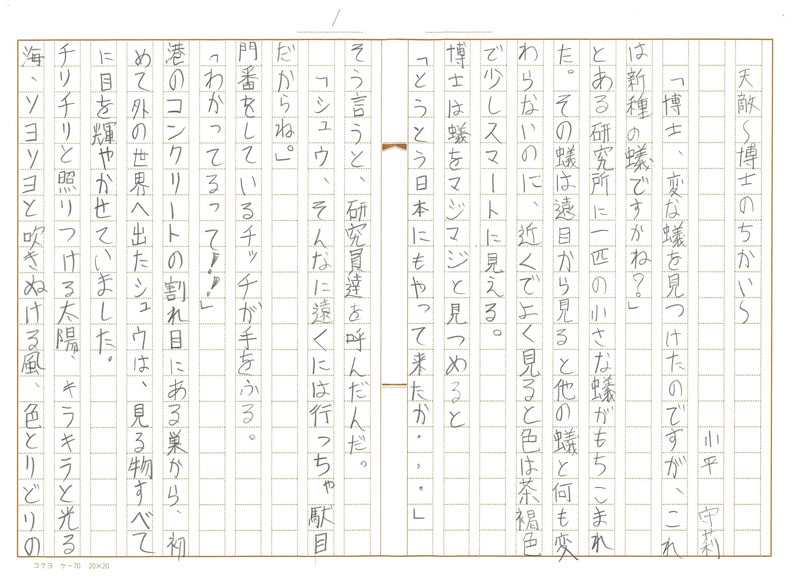 1
天敵～博士のちかい～
小平 守莉
「博士、変な蟻を見つけたのですが、これ
は新種の蟻ですかね?」
とある研究所に一匹の小さな蟻がもちこまれ
た。その蟻は遠目から見ると他の蟻と何も変
わらないのに、近くでよく見ると色は茶褐色
で少しスマートに見える。
博士は蟻をマジマジと見つめると
「とうとう日本にもやって来たか・・・」
そう言うと、研究員達を呼んだんだ。
「シュウ、そんなに遠くには行っちゃ駄目
だからね。」
門番をしているチッチが手をふる。
「わかってるって!!」
港のコンクリートの割れ目にある巣から、初
めて外の世界へ出たシュウは、見る物すべて
に目を輝やかせていました。
チリチリと照りつける太陽、キラキラと光る
海、ソヨソヨと吹きぬける風、色とりどりの
コクヨ ケー70 20×20